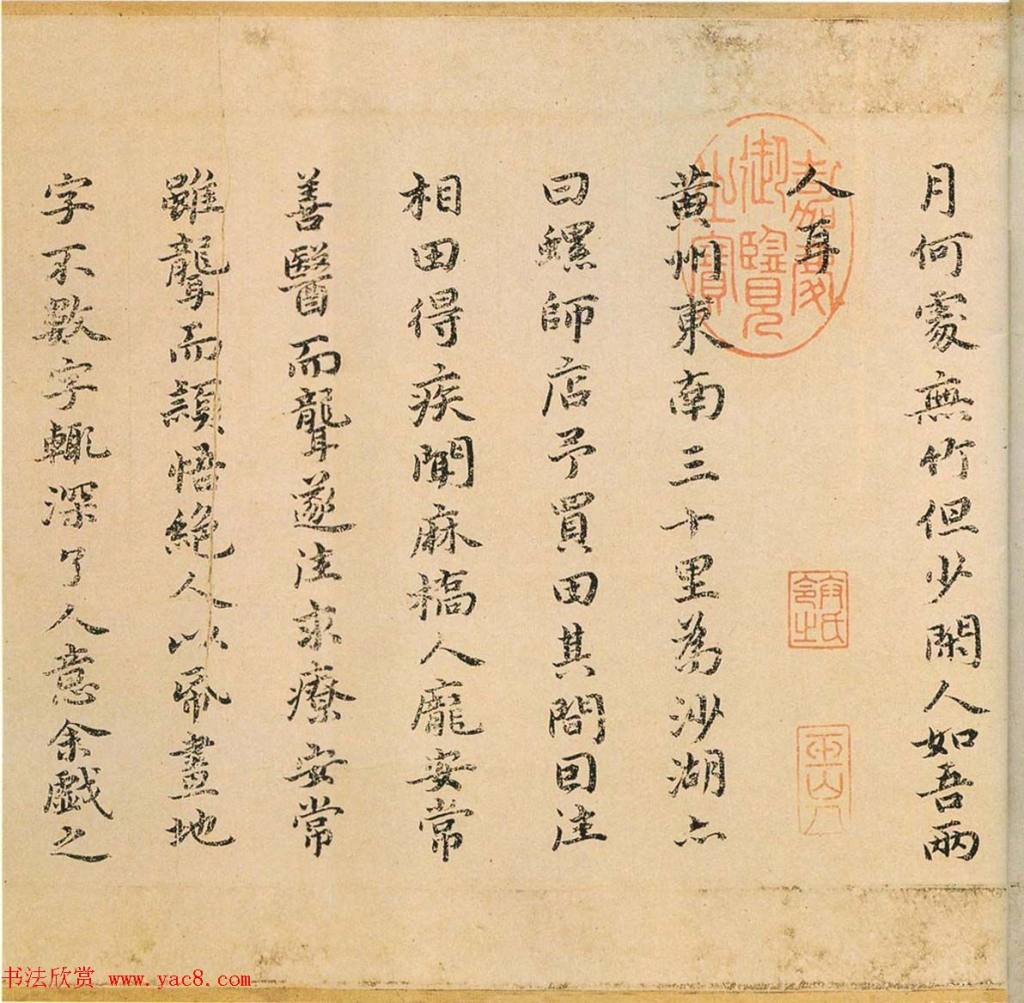 月何處無竹但少閑人如吾兩
人耳
黄州東南三十里為沙湖亦
曰螺師店予買田其間因往
相田得疾聞麻橋人龐安常
善醫而聾遂往求療安常
雖聾而穎悟絶人以帋畫地
字不數字輒深了人意余戲之
嘉慶御覽之寶
书法欣赏 www.yac8.com